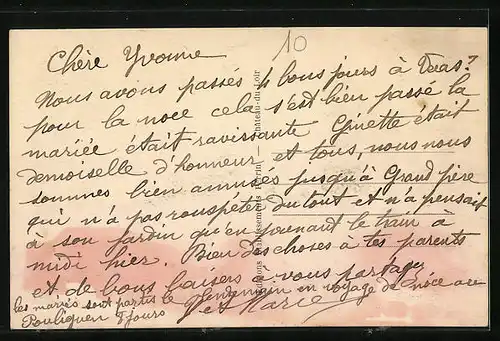 10
Chère Yvonne
Nous avons passés 4 bons jours à
pour la noce cela s'est bien passé la
mariée était ravissante Ginette était
demoiselle d'honneur et tous, nous nous
sommes bien amusés jusqu'à Grand père
qui n'a pas rouspéter du tout et n'a pensait
à son jardin qu'en prenant le train à
midi hier. Bien des choses à tes parents
et de bons baisers à vous partager
les mariés sont partis le lendemain en voyage de noce au
Pouliguen jours
et Marie
Château-du-Loir